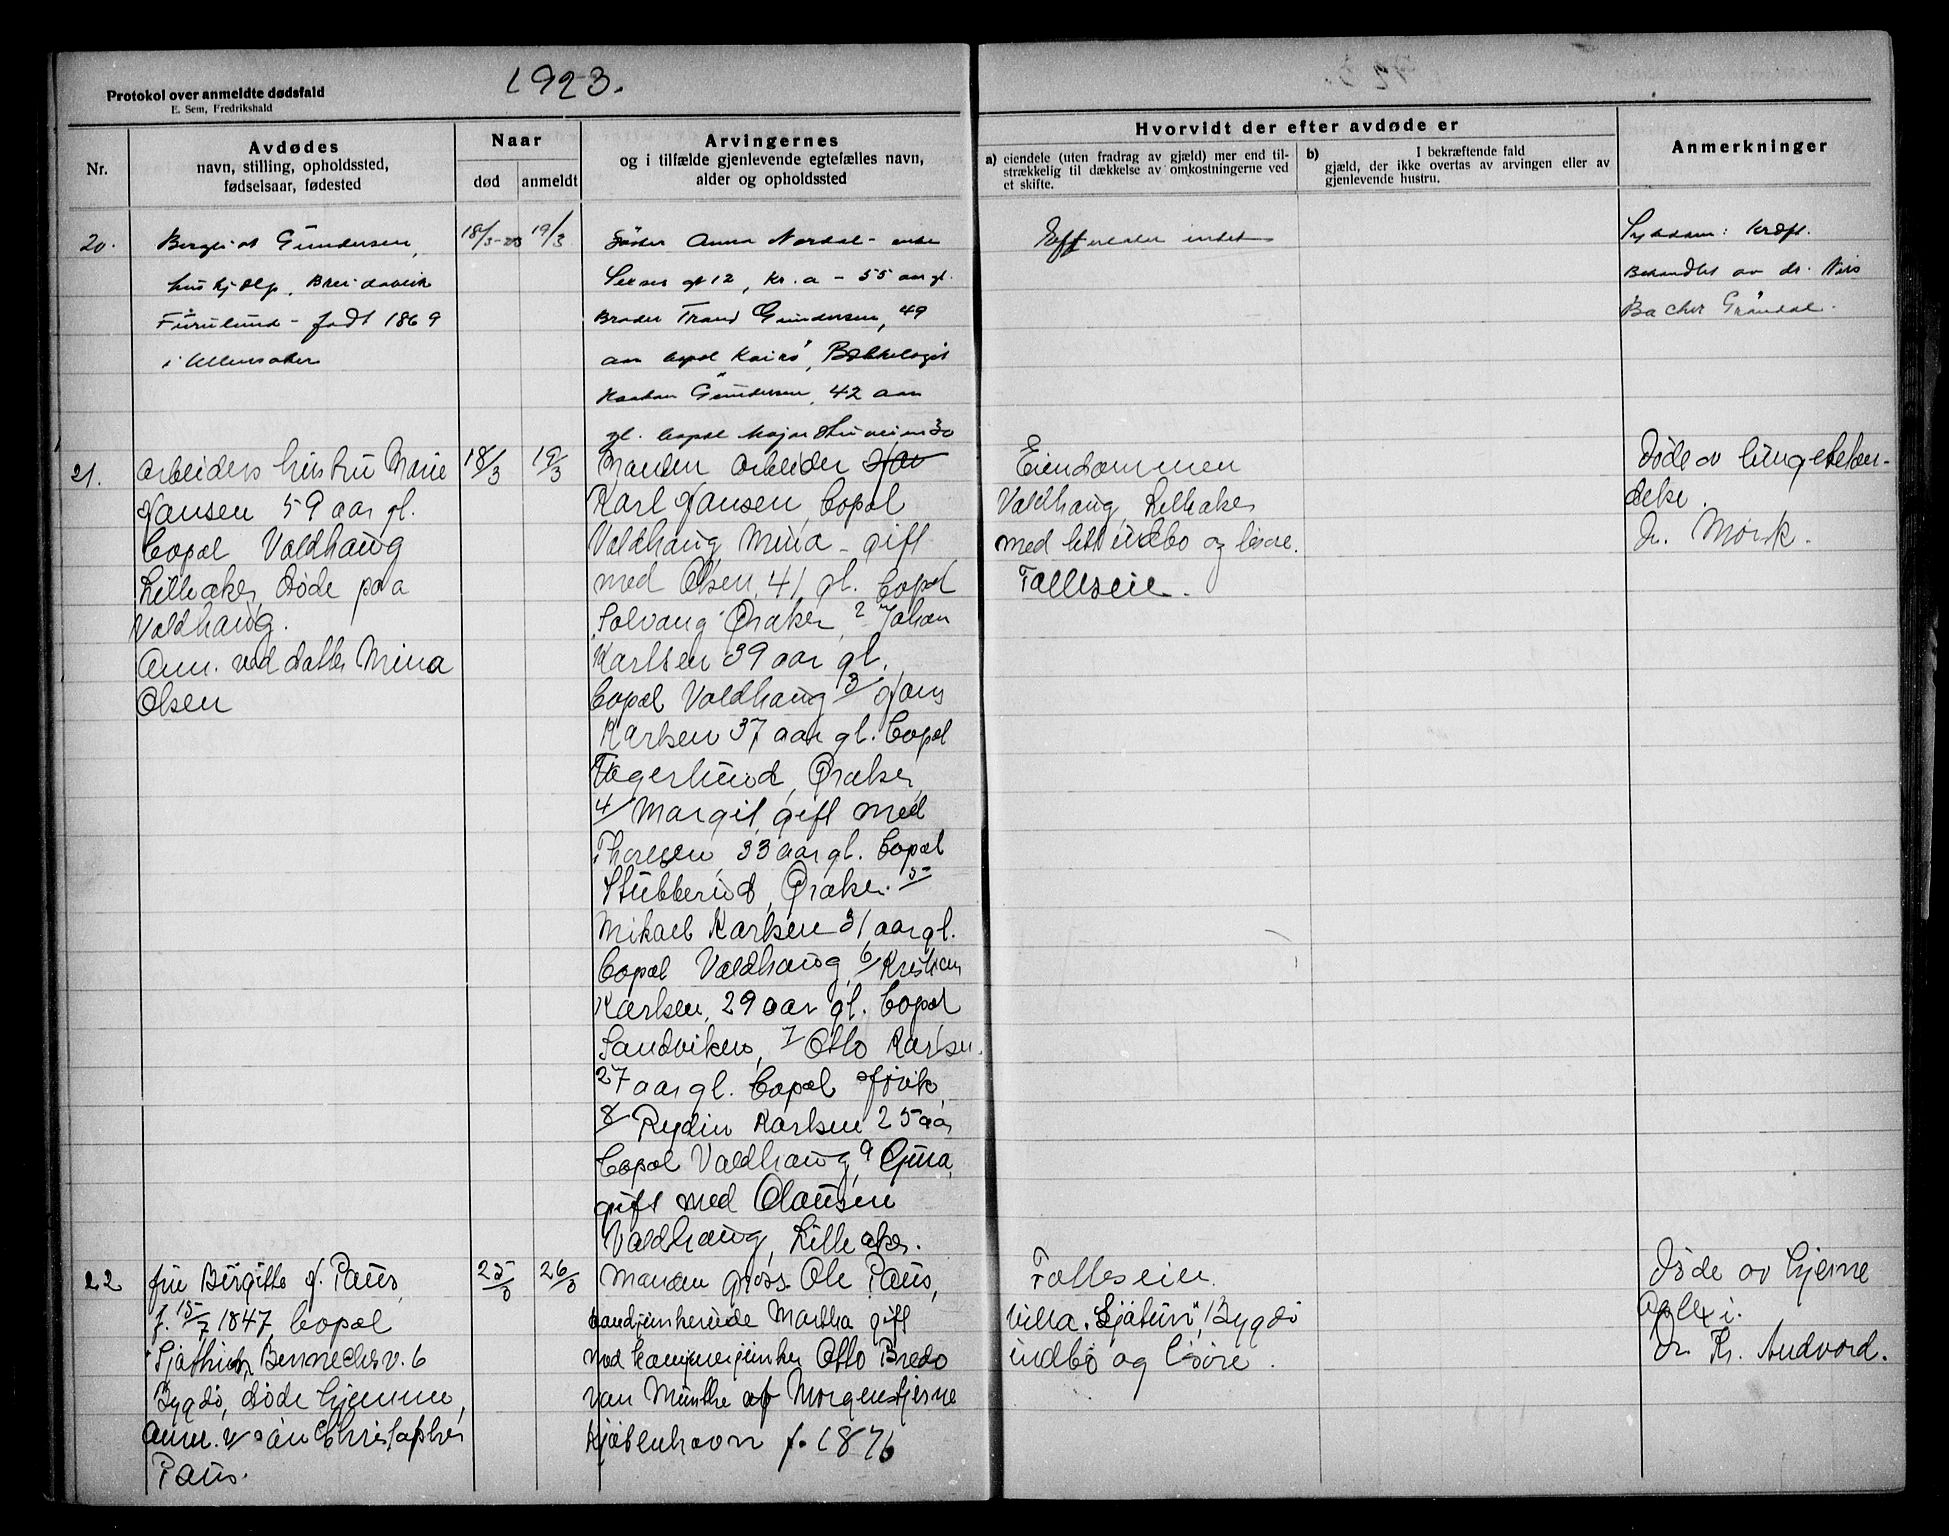 1923.
Protokol over anmeldte dødsfald
E. Sem, Fredrikshald
Nr.
Avdødes
navn, stilling, opholdssted,
fødselsaar, fødested
Naar
død
anmeldt
Arvingernes
og i tilfælde gjenlevende egtefælles navn,
alder og opholdssted
Hvorvidt der efter avdøde er
a) eiendele (uten fradrag av gjæld) mer end til-
strækkelig til dækkelse av omkostningerne ved
et skifte.
b) I bekræftende fald
gjæld, der ikke overtas av arvingen eller av
gjenlevende hustru.
Anmerkninger
20.
Bergliot Gundersen,
huskjælp, Breidablik
Furulund - født 1869
i Ullensaker
18/3-23
19/3
Søster Anna Nordal - enke
gt 12, Kr.a - 55 aar gl.
Broder Trand Gundersen, 49
aar bopæl Kairo, Bækkelaget
Haakon Gundersen, 42 aar
gl. bopæl Majorstuveien 30
Efterlater intet
Sykdom: Kræft.
Behandlet av dr. Nils
Backer Grøndal.
21.
Arbeiders hustru Marie
Jansen 59 aar gl.
bopæl Valdhaug
Lilleaker, døde paa
Valdhaug.
Anm. ved datter Mina
Olsen
18/3
19/3
Manden arbeider Jan
Karl Jansen, bopæl
Valdhaug Mina - gift
med Olsen, 41 gl. bopæl
Solvang Øraker, 2/ Johan
Karlsen 39 aar gl.
bopæl Valdhaug 3/ Hans
Karlsen 37 aar gl. bopæl
Fagerlund, Øraker,
4/ Margit, gift med
Thoresen, 33 aar gl. bopæl
Stubberud, Øraker. 5/
Mikael Karlsen 31 aar gl.
bopæl Valdhaug, 6/ Kristian
Karlsen, 29 aar gl. bopæl
Sandviken, 7/ Otto Karlsen
27 aar gl. bopæl Gjøvik,
8/ Rydin Karlsen 25 aar
bopæl Valdhaug, 9 Gina,
gift med Clausen
Valdhaug, Lilleaker.
Eiendommen
Valdhaug, Lilleaker
med litt indbo og løsøre.
Fælleseie.
Døde av lungebetæn-
delse.
Dr. Mørk.
22
fru Birgitte f. Paus,
f. 15/7 1847, bopæl
Bennechesv. 6
Bygdø, døde hjemme,
Anm. v/ søn Christopher
Paus.
25/3
26/3
Manden gross. Ole Paus,
Martha gift
med kammerjunker Otto Bredo
van Munthe af Morgenstjerne
Kjøbenhavn f. 1876
Fælleseie.
Villa "Sjøtun", Bygdø
indbo og løsøre.
Døde av hjerne
apoplexi.
Dr. Kr. Andvord.